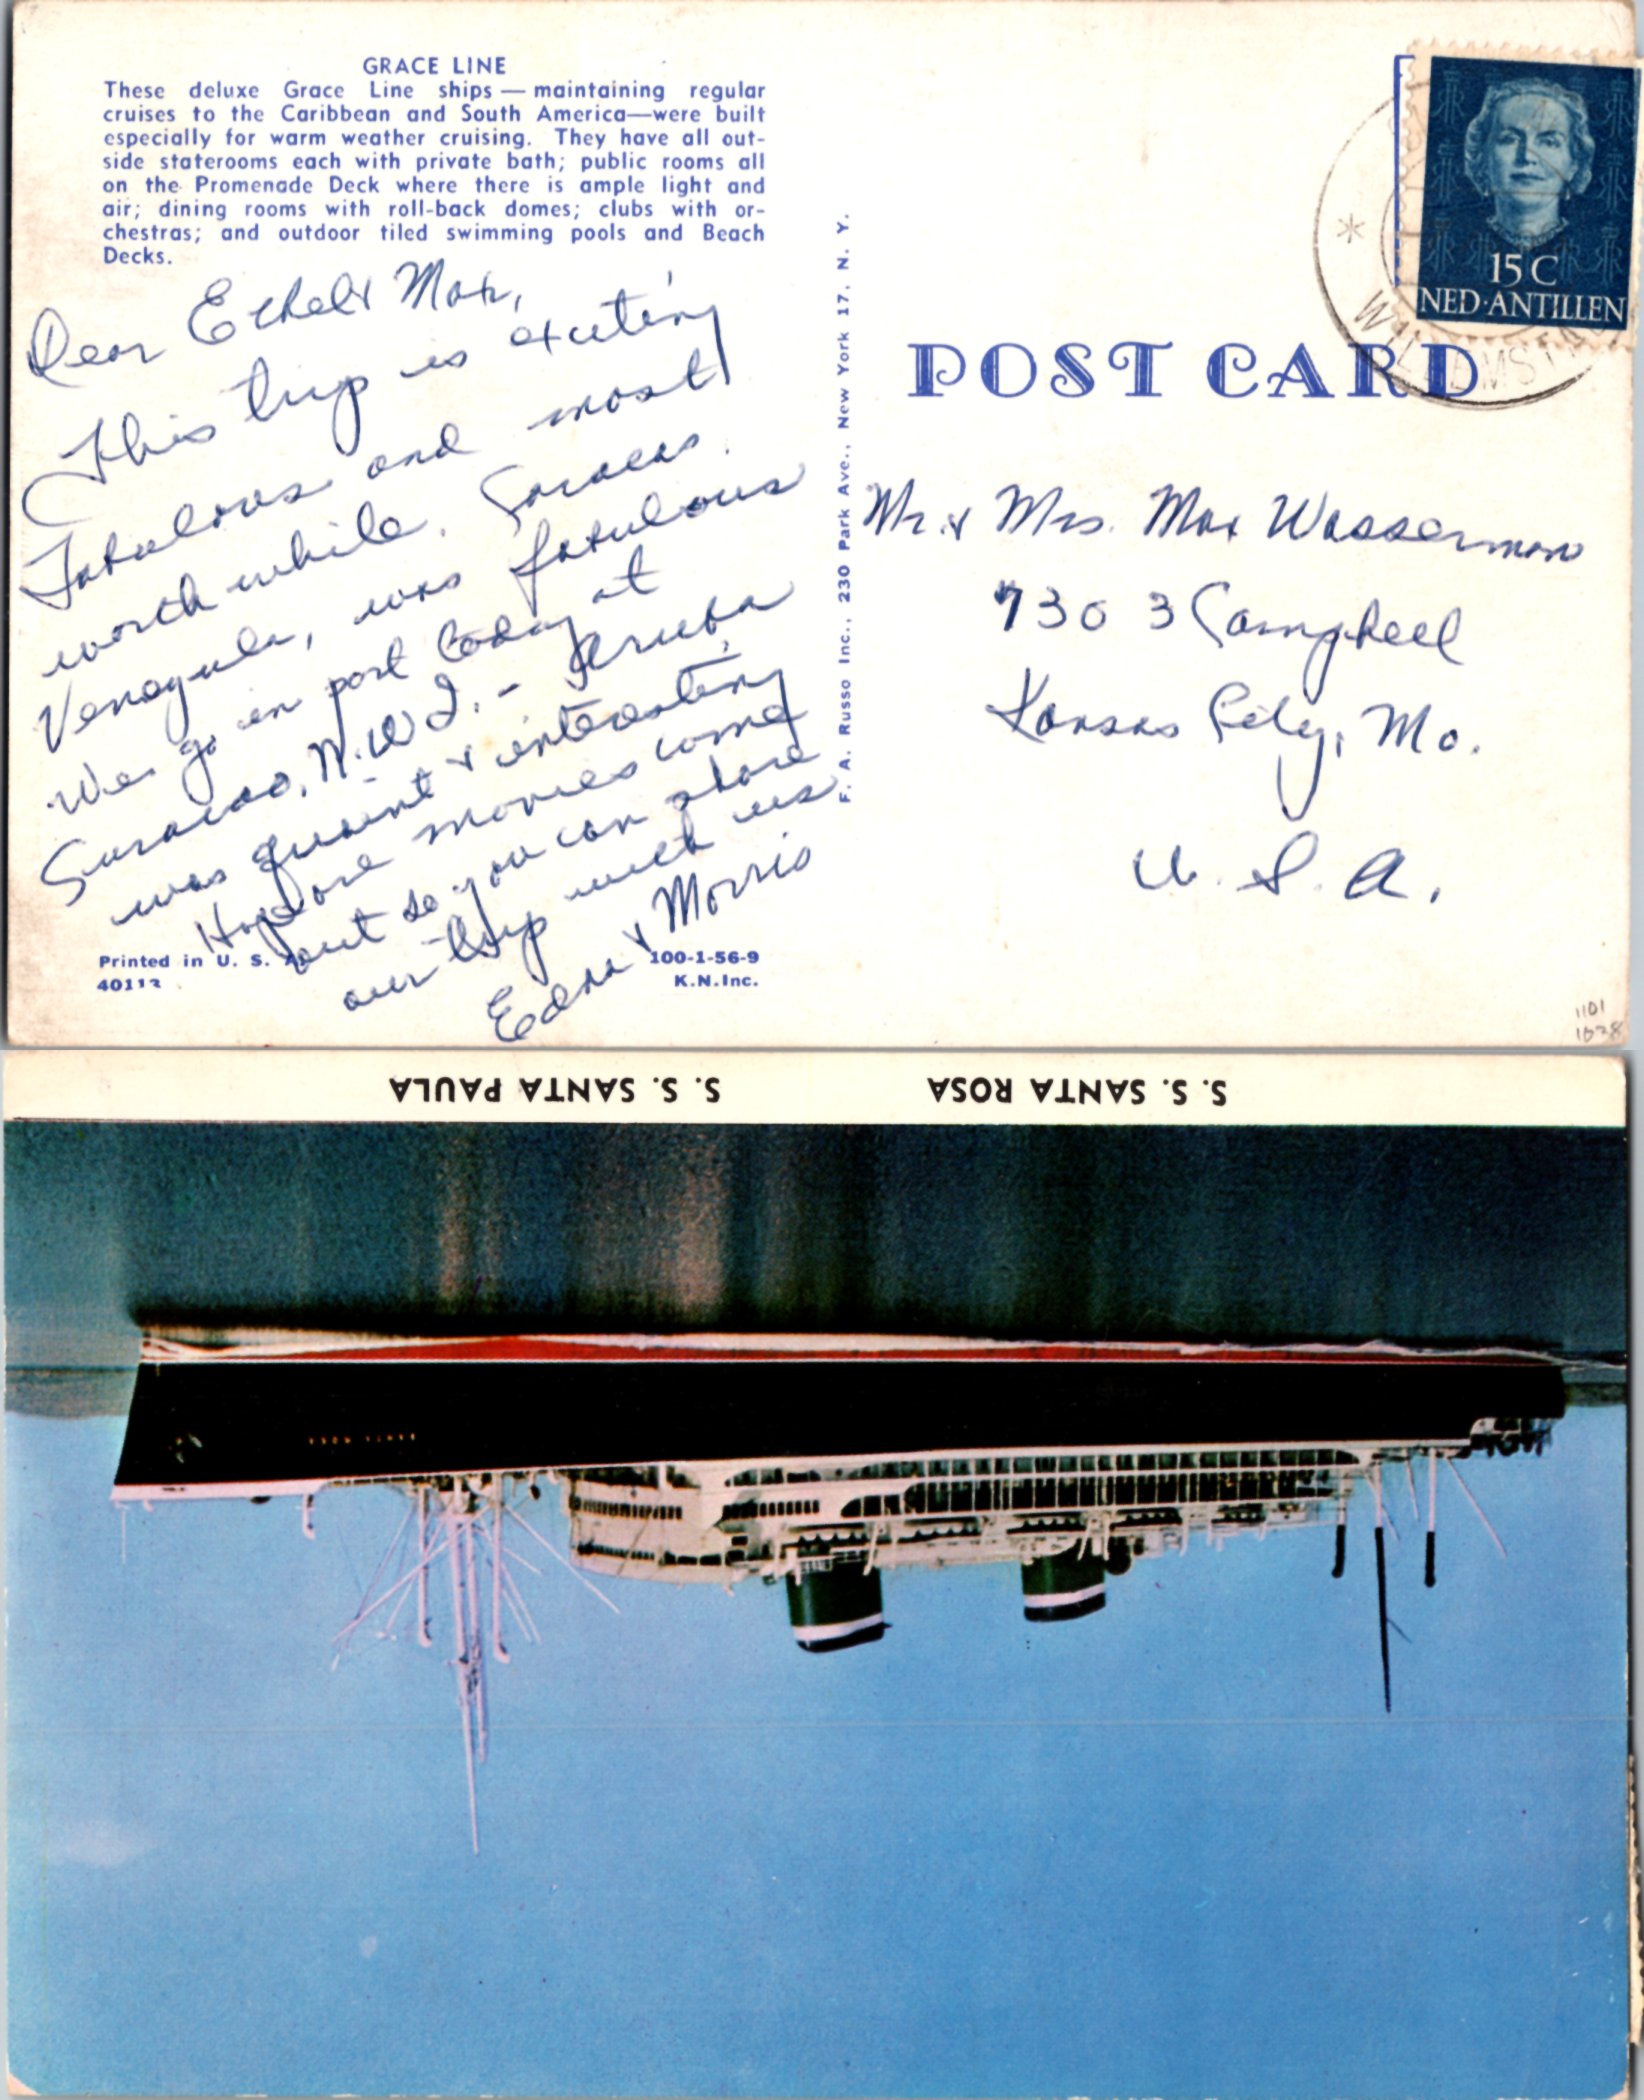 GRACE LINE
These deluxe Grace Line ships — maintaining regular
cruises to the Caribbean and South America—were built
especially for warm weather cruising. They have all out-
side staterooms each with private bath; public rooms all
on the Promenade Deck where there is ample light and
air; dining rooms with roll-back domes; clubs with or-
chestras; and outdoor tiled swimming pools and Beach
Decks.
Dear Ethel & Max,
This trip is exciting
fabulous and most
worth while. Caracas
Venezuela, was fabulous
We go in port today at
Curacao, N.W.I. - Aruba
was quaint & interesting
Hope our movies come
out so you can share
our trip with us
Edna & Morris
Printed in U. S. A.
40113
100-1-56-9
K.N.Inc.
F. A. Russo Inc., 230 Park Ave., New York 17, N. Y.
15 C
NED·ANTILLEN
WILLEMST
POST CARD
Mr. & Mrs. Max Wasserman
7303 Campbell
Kansas City, Mo.
U. S. A.
1101
1038
S. S. SANTA ROSA S. S. SANTA PAULA
SANTA ROSA